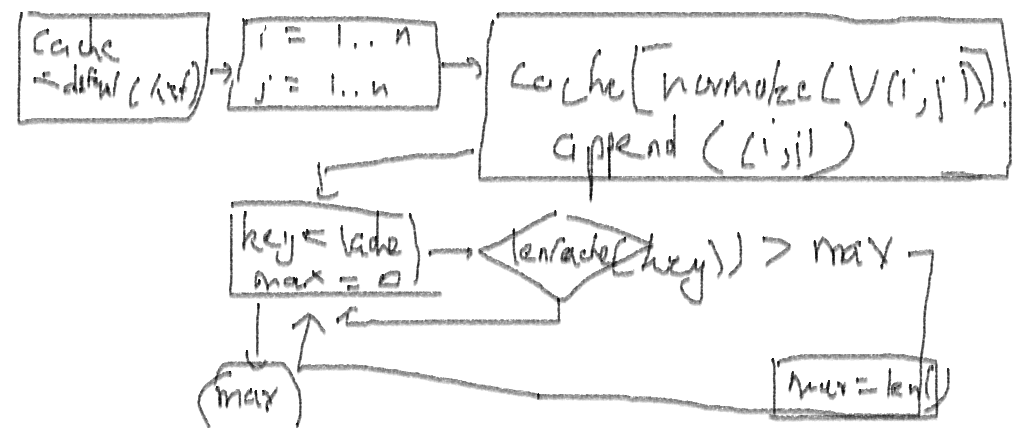 cache
i = 1..n
j = 1..n
cache[normalize(V(i,j))].
append((i,j))
key ← cache
max = 0
len(cache(key)) > max
max = len()
max